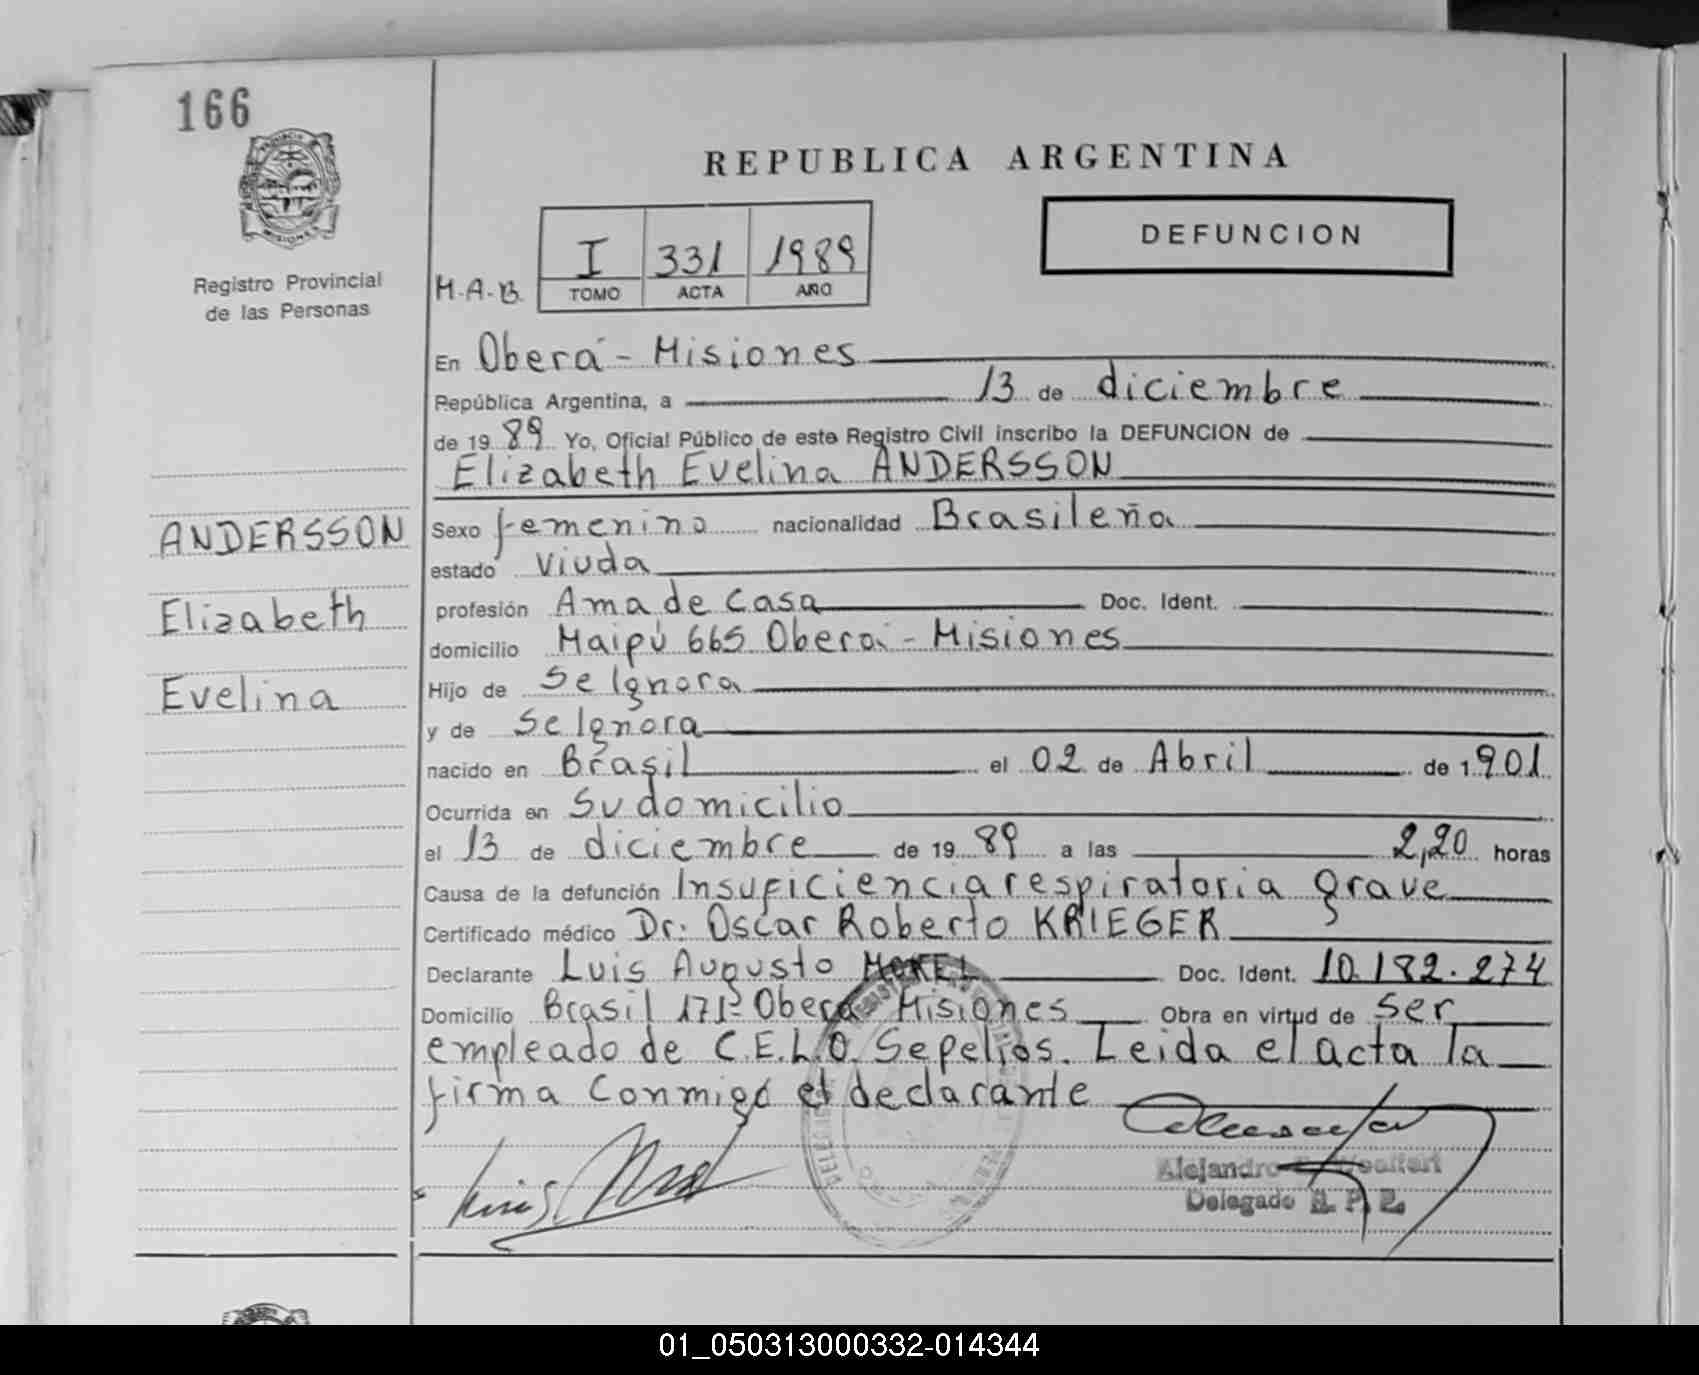 166
PROVINCIA
MISIONES
Registro Provincial
de las Personas
ANDERSSON
Elizabeth
Evelina
REPUBLICA ARGENTINA
DEFUNCION
M.A.B.
I 331 1989
TOMO ACTA AÑO
En Oberá - Misiones
República Argentina, a 13 de diciembre
de 1989 Yo, Oficial Público de este Registro Civil inscribo la DEFUNCION de
Elizabeth Evelina ANDERSSON
Sexo femenino nacionalidad Brasileña
estado Viuda
profesión Ama de Casa Doc. Ident.
domicilio Maipú 665 Oberá - Misiones
Hijo de Se Ignora
y de Se Ignora
nacido en Brasil el 02 de Abril de 1901
Ocurrida en Su domicilio
el 13 de diciembre de 1989 a las 2,20 horas
Causa de la defunción Insuficiencia respiratoria grave
Certificado médico Dr: Oscar Roberto KRIEGER
Declarante Luis Augusto MOREL Doc. Ident. 10.182.274
Domicilio Brasil 171- Oberá Misiones Obra en virtud de ser
empleado de C.E.L.O. Sepelios. Leida el acta la
firma conmigo el declarante
Luis Morel
Alejandro
Delegado R. P. P.
01_050313000332-014344